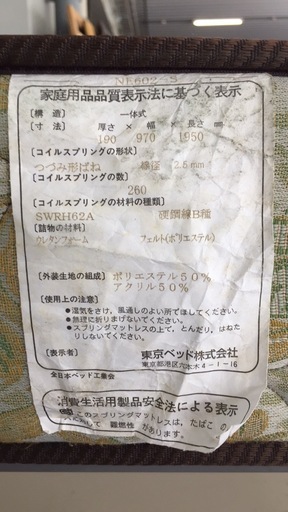 NF602 S
家庭用品品質表示法に基づく表示
[構造] 一体式
[寸法] 厚さ×幅×長さ㎜
190 970 1950
[コイルスプリングの形状]
つづみ形ばね 線径 2.5mm
[コイルスプリングの数]
260
[コイルスプリングの材料の種類]
SWRH62A 硬鋼線B種
[詰物の材料]
ウレタンフォーム フェルト(ポリエステル)
[外装生地の組成] ポリエステル50%
アクリル50%
[使用上の注意]
●湿気をさけ、風通しのよい所でほしてください。
●無理に折りまげないでください。
●スプリングマットレスの上で、とんだり、はねたりしないでください。
[表示者] 東京ベッド株式会社
東京都港区六本木4-1-16
全日本ベッド工業会
消費生活用製品安全法による表示
このスプリングマットレスは、たばこの
に対して 難燃性 があります。